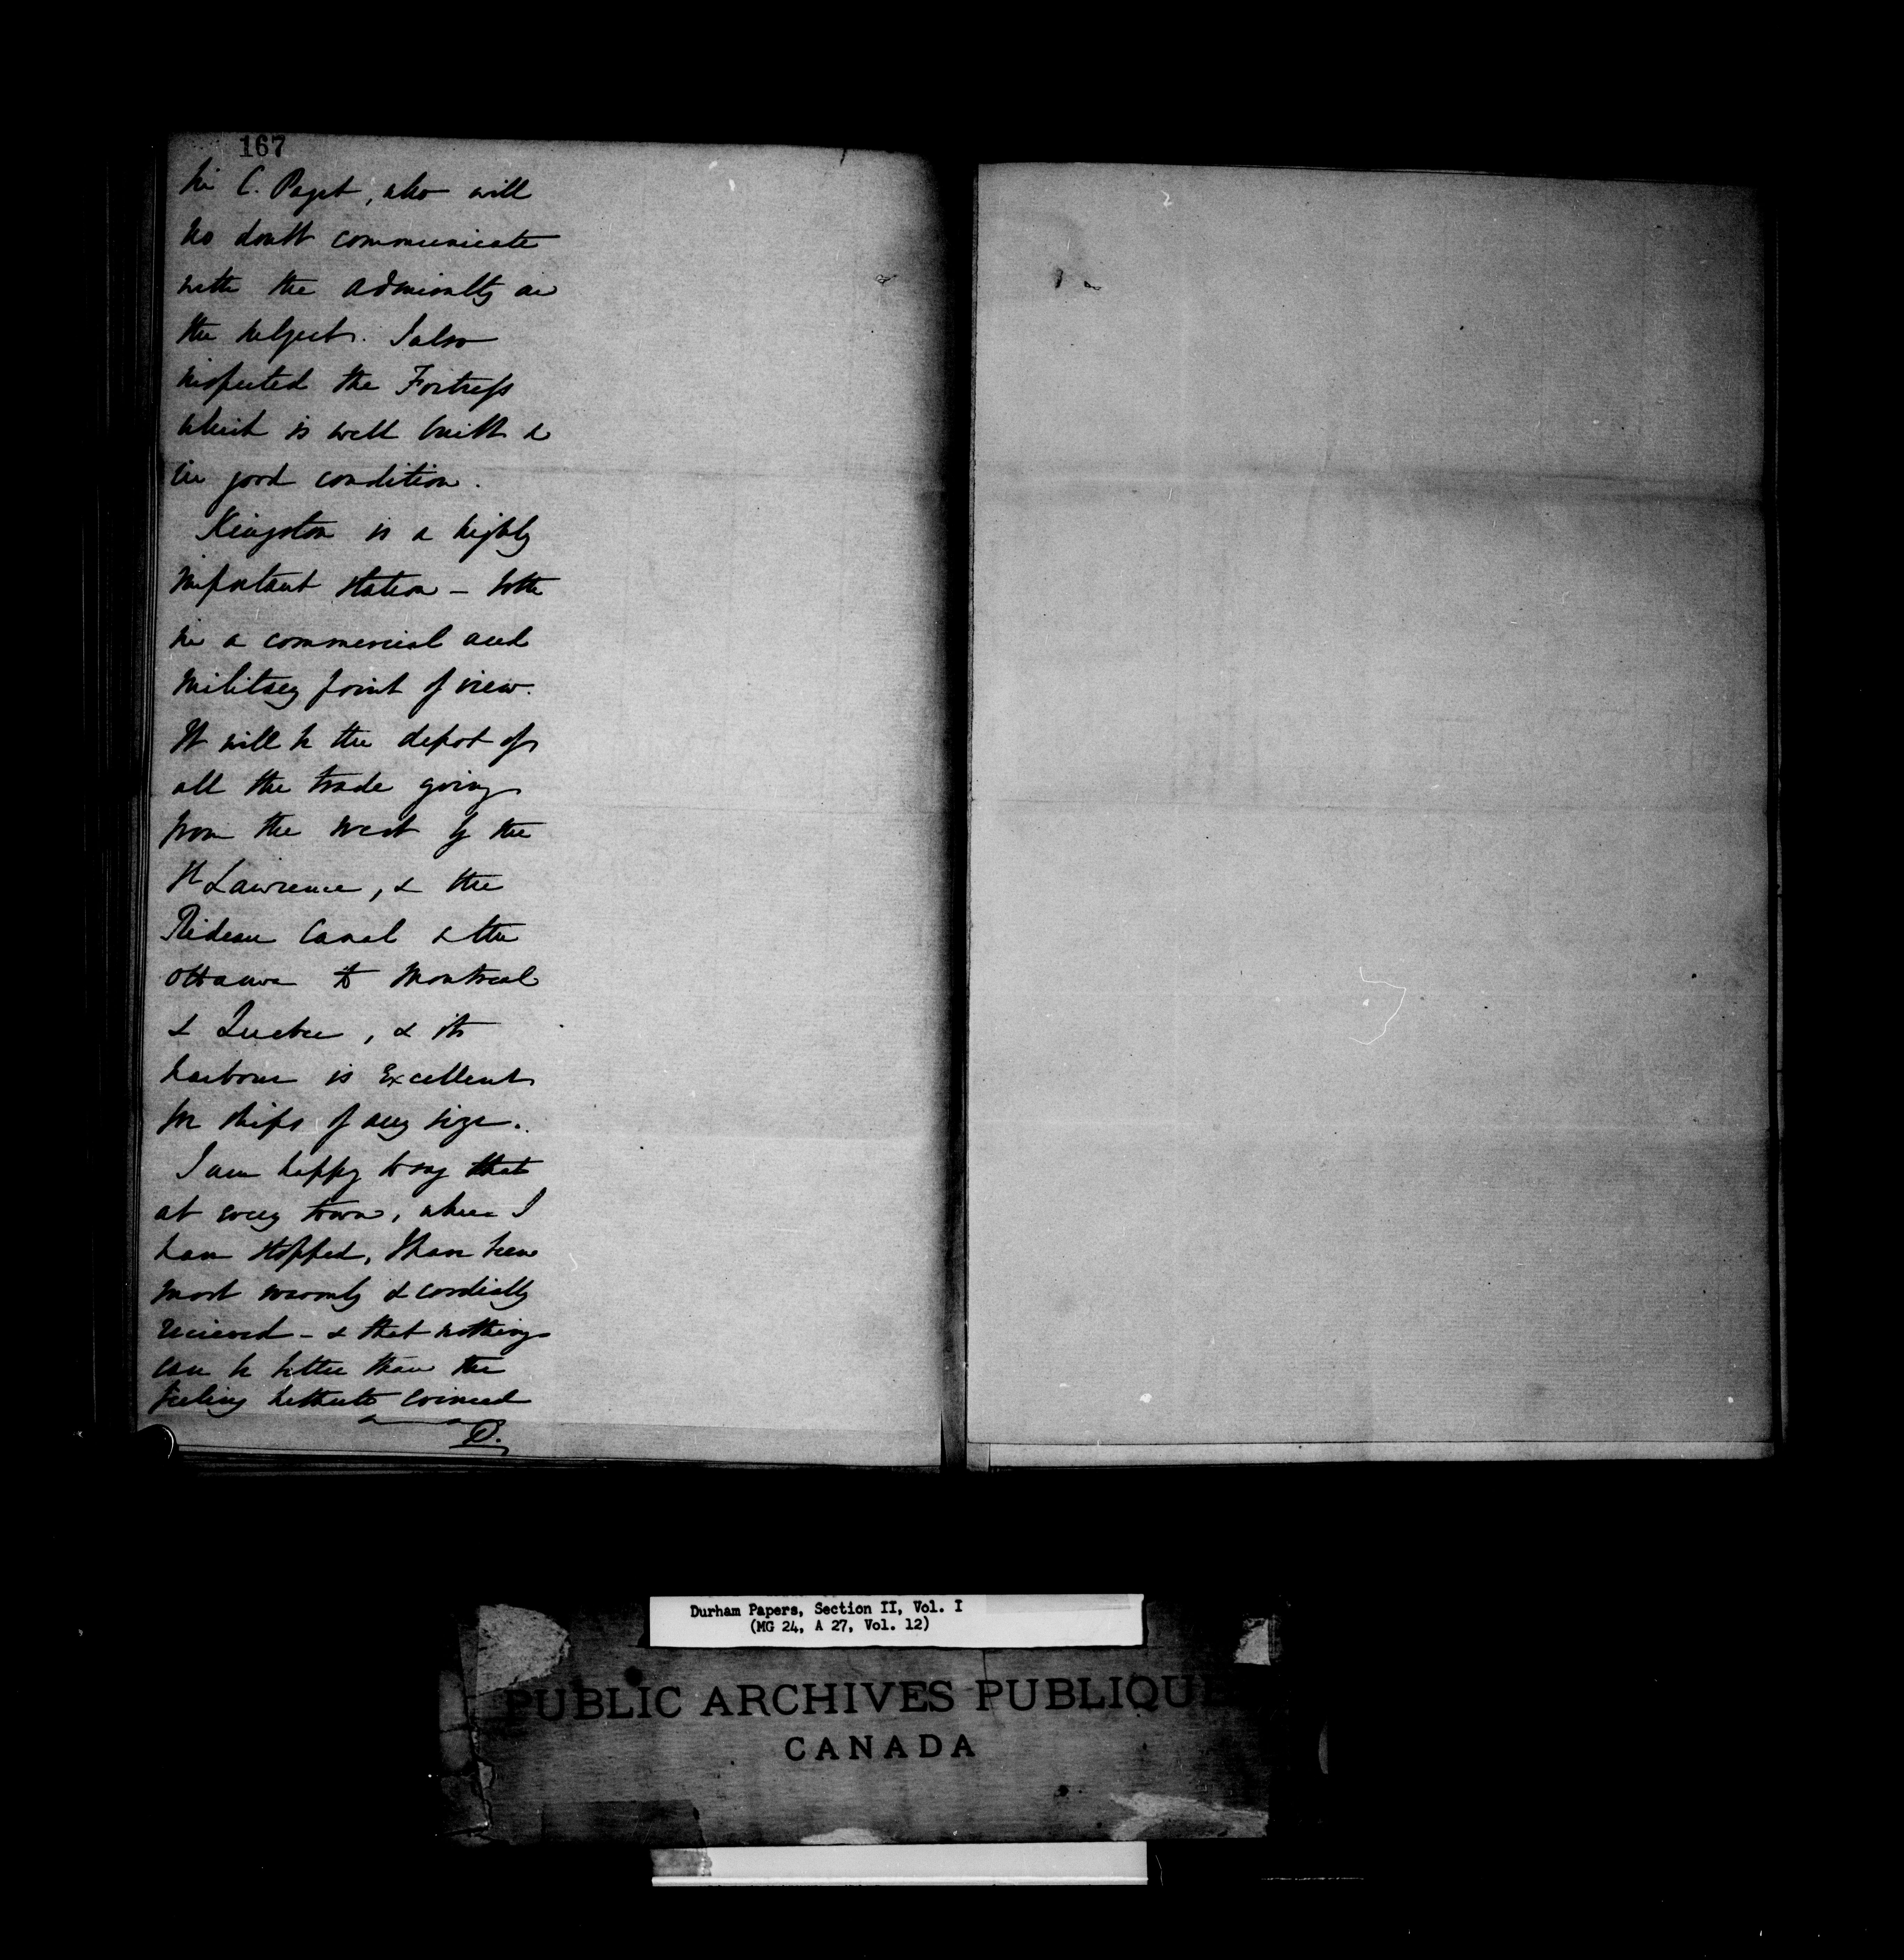 167
Sir C. Paget, who will
no doubt communicate
with the Admiralty on
the subject. I also
inspected the Fortress
which is well built &
in good condition.
Kingston is a highly
important station - both
in a commercial and
military point of view.
It will be the depot of
all the trade going
from the west by the
St Lawrence, & the
Rideau Canal & the
Ottawa to Montreal
& Quebec, & its
harbour is excellent
for ships of any size.
I am happy to say that
at every town, where I
have stopped, I have been
most warmly & cordially
recieved - & that nothing
can be better than the
feeling hitherto evinced
D.
Durham Papers, Section II, Vol. I
(MG 24, A 27, Vol. 12)
PUBLIC ARCHIVES PUBLIQUE
CANADA